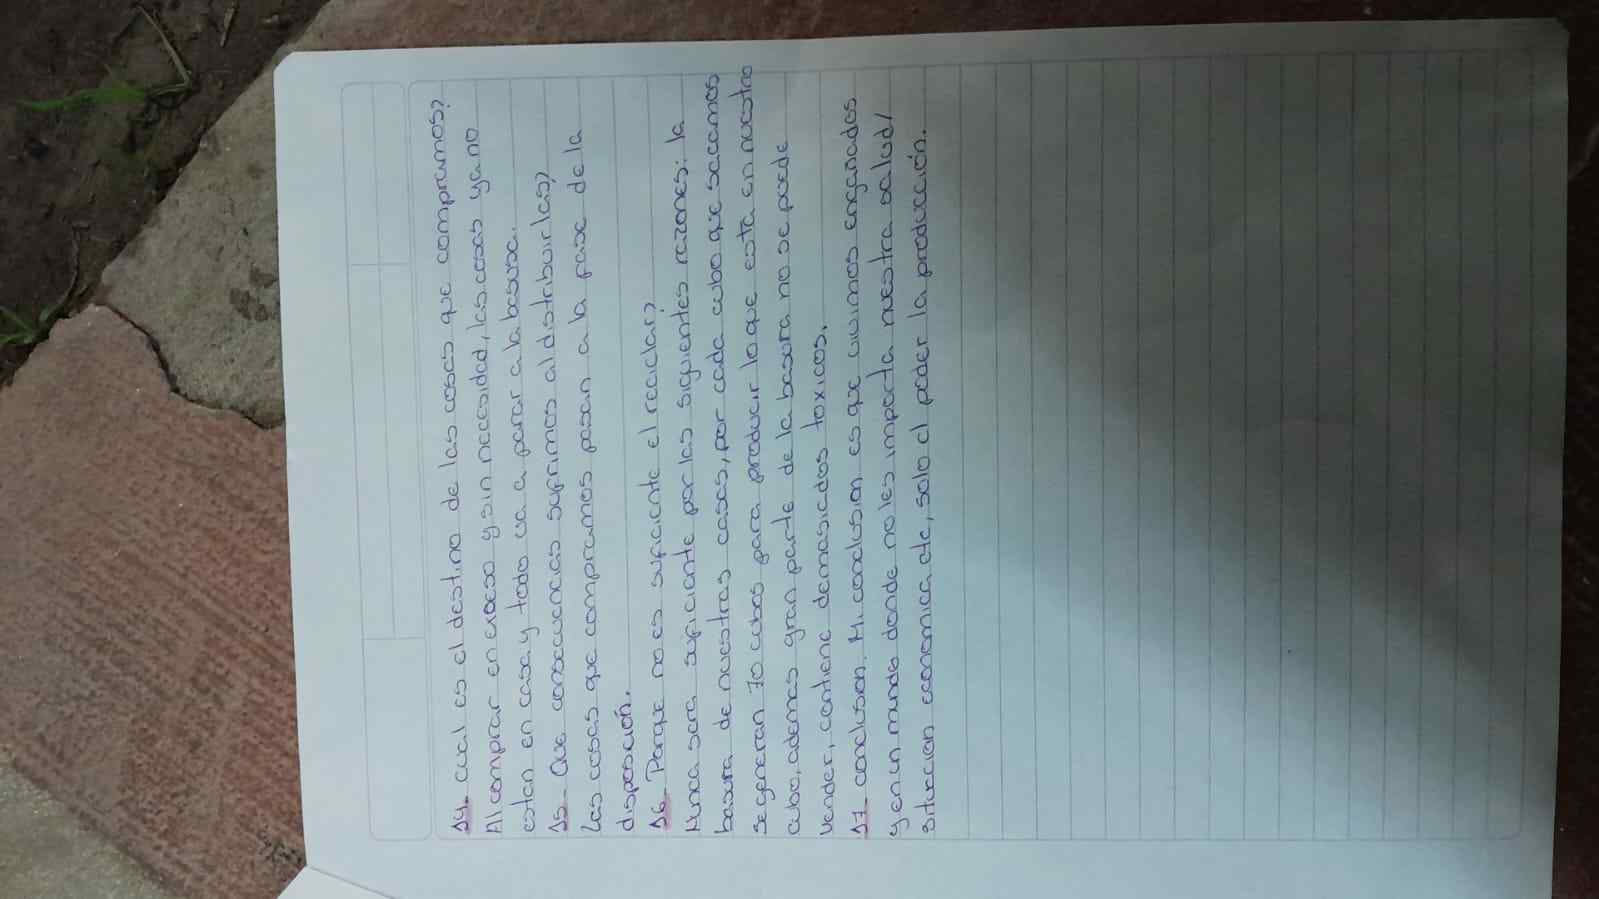 14- cual es el destino de las cosas que compramos?
Al comprar en exceso y sin necesidad, las cosas ya no
estan en casa y todo va a parar a la basura.
15- Que consecuencias sufrimos al distribuirlas?
Las cosas que compramos pasan a la fase de la
disposición.
16- Porque no es suficiente el reciclar?
Nunca sera suficiente por las siguientes razones: la
basura de nuestras casas, por cada cubo que sacamos
se generan 70 cubos para producir lo que esta en nuestro
cubo, ademas gran parte de la basura no se puede
vender, contiene demasiados toxicos.
17- conclusion. Mi conclusion es que vivimos engañados
y en un mundo donde no les importa nuestra salud,
situacion economica etc, solo el poder la producción.